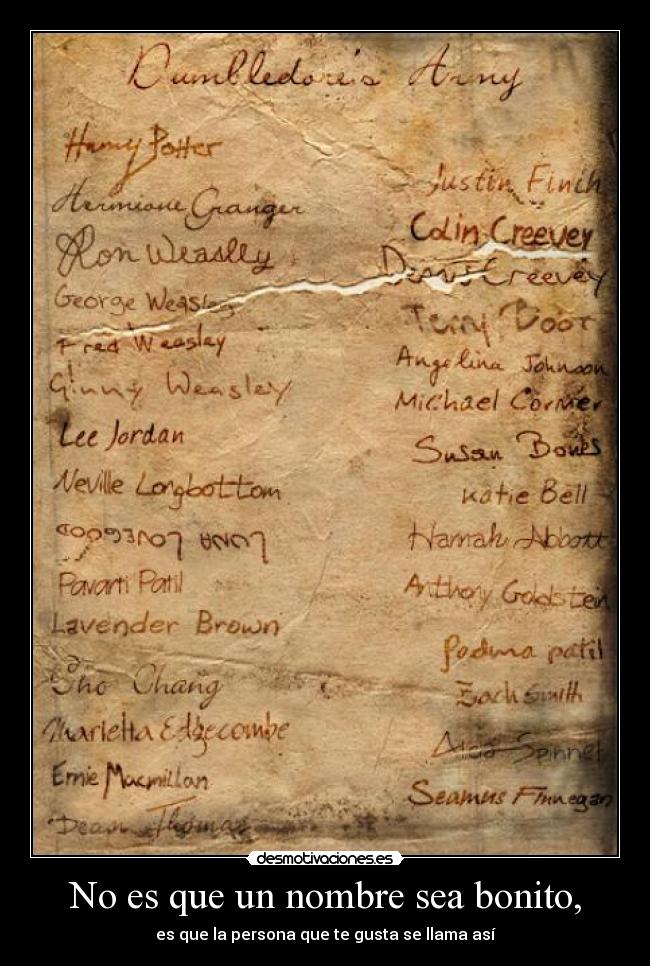 Dumbledore's Army
Harry Potter
Hermione Granger
Ron Weasley
George Weasley
Fred Weasley
Ginny Weasley
Lee Jordan
Neville Longbottom
LUNA LOVEGOOD
Parvarti Patil
Lavender Brown
Cho Chang
Marietta Edgecombe
Ernie Macmillan
Dean Thomas
Justin Finch
Colin Creevey
Dennis Creevey
Terry Boot
Angelina Johnson
Michael Corner
Susan Bones
Katie Bell
Hannah Abbott
Anthony Goldstein
Padma patil
Zach Smith
Alicia Spinnet
Seamus Finnegan
desmotivaciones.es
No es que un nombre sea bonito,
es que la persona que te gusta se llama así